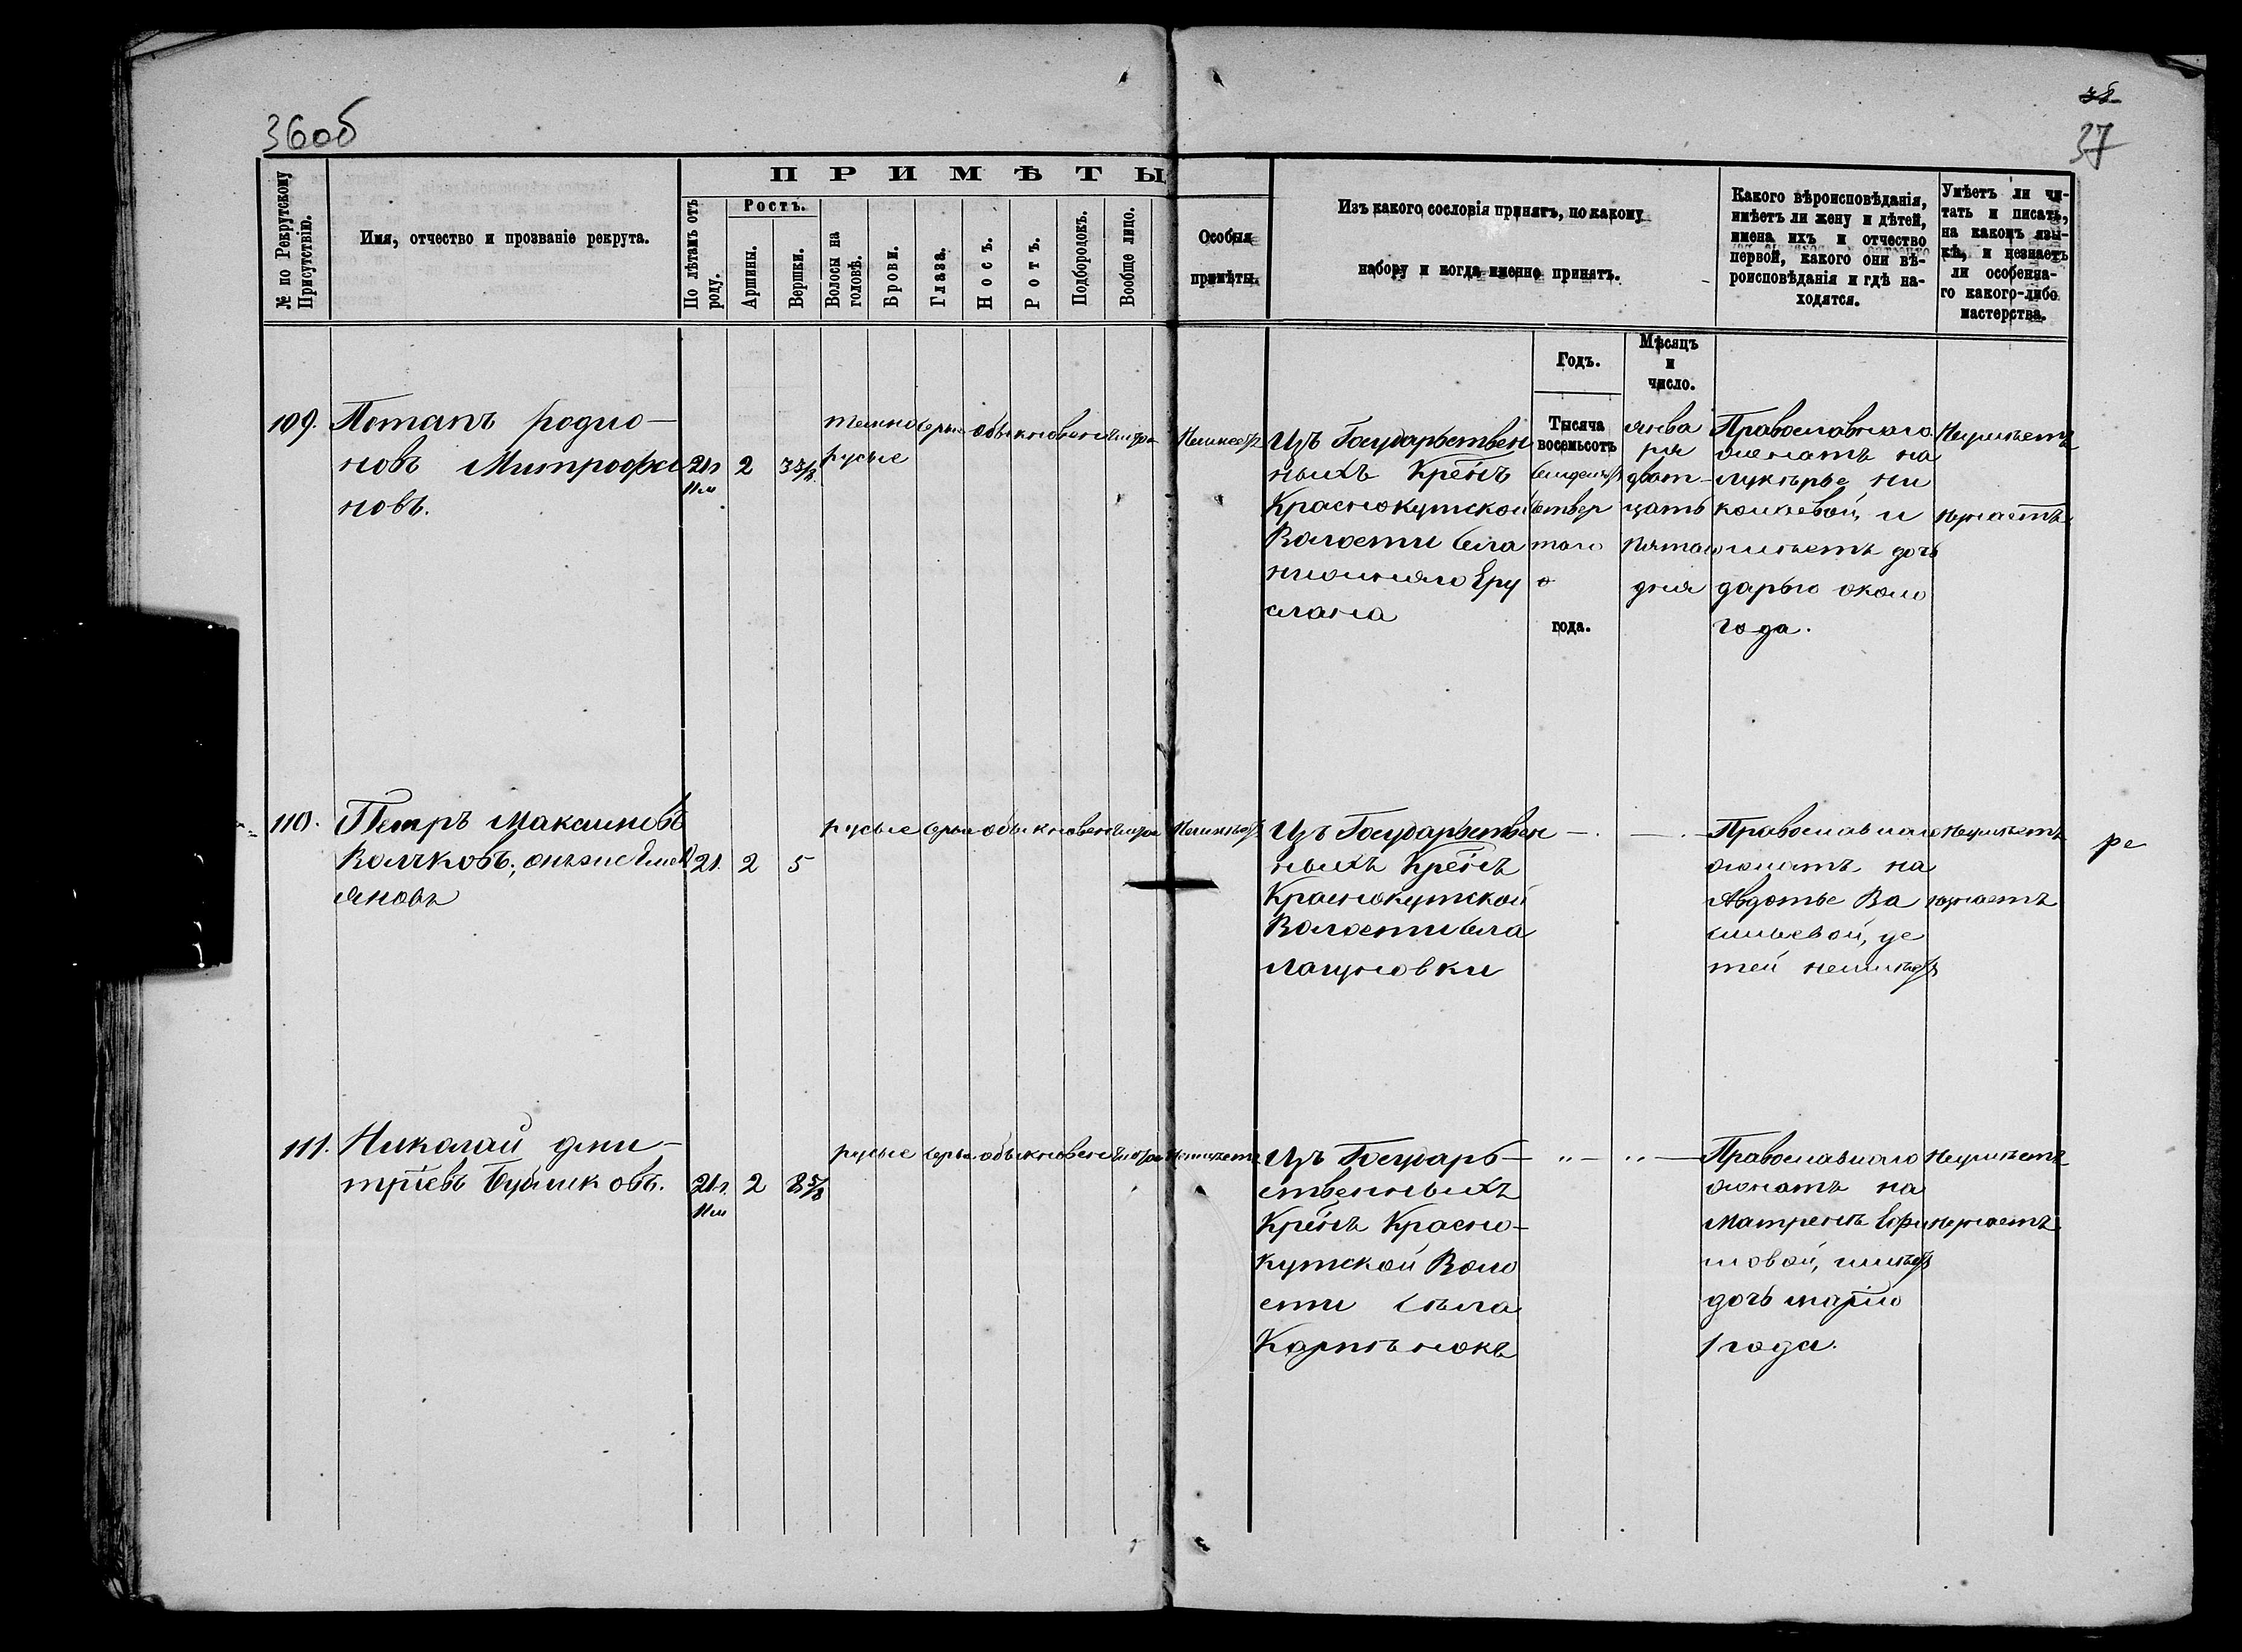 36об
38
37
ПРИМѢТЫ
№ по Рекрутскому Присутствію.
Имя, отчество и прозваніе рекрута.
По лѣтамъ отъ роду.
Ростъ.
Аршины.
Вершки.
Волосы на головѣ.
Брови.
Глаза.
Носъ.
Ротъ.
Подбородокъ.
Вообще лицо.
Особыя
примѣты.
Изъ какого сословія принятъ, по какому
набору и когда именно принятъ.
Какого вѣроисповѣданія,
имѣетъ ли жену и дѣтей,
имена ихъ и отчество
первой, какого они вѣ-
роисповѣданія и гдѣ на-
ходятся.
Умѣетъ ли чи-
тать и писать,
на какомъ язы-
кѣ, и незнаетъ
ли особенна-
го какого-либо
мастерства.
Годъ.
Мѣсяцъ
и
число.
109.
Потапъ родио-
новъ Митрофа
новъ.
21 г
11 м
2
3 3/8
темно
русые
серые
обыкновен
чистое
Неимеетъ
Изъ Государствен
ныхъ Крестнъ
Краснокутской
Волости села
нижняго Еру
слана
Тысяча
восемьсотъ
семдесятъ
четвер
таго
года.
янва
ря
дват-
цать
пятаго
дня
Православнаго
женатъ на
лукѣрье ни
колаевой, и
имѣетъ дочь
дарью около
года.
Неумѣетъ
незнаетъ
110.
Петръ Максимовъ
Волчковъ, онъ же Емел
яновъ
21.
2
5
русые
серые
обыкновен
чистое
Неимѣетъ
Изъ Государствен
ныхъ Крестнъ
Краснокутской
Волости села
лапуновки
Православнаго
женатъ на
Авдотье Ва
сильевой, де
тей неимѣетъ
Неумѣетъ
незнаетъ
ре
111.
Николай дми-
тріевъ Бубликовъ.
21 г
11 м
2
8 5/8
русые
серые
обыкновен
чистое
Неимѣетъ
Изъ Государь-
ственныхъ
Крестнъ Красно-
кутской Воло
сти Села
Карпѣнокъ
Православнаго
женатъ на
Матренѣ Ефи
мовой, имѣетъ
дочь марію
1 года.
Неумѣетъ
незнаетъ